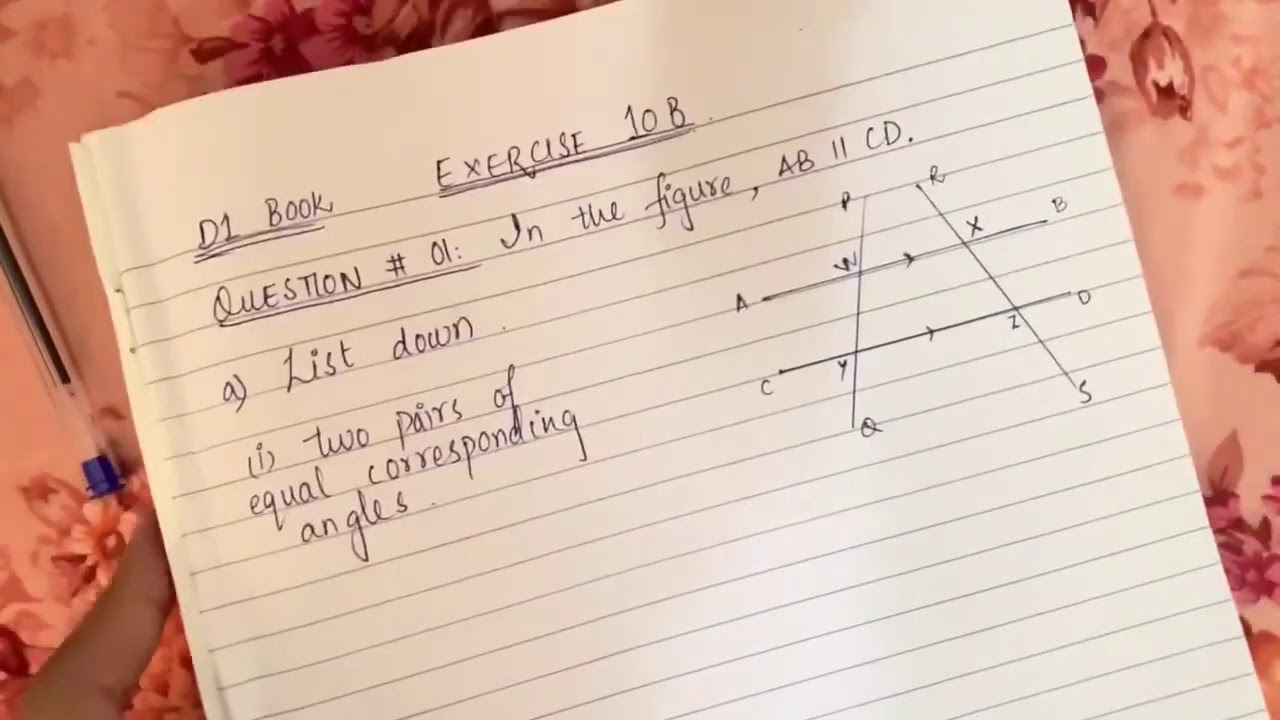 EXERCISE 10B.
D1 BOOK
QUESTION # 01: In the figure, AB || CD.
a) List down.
(i) two pairs of
equal corresponding
angles.
P
R
B
X
W
A
D
Z
Y
C
S
Q